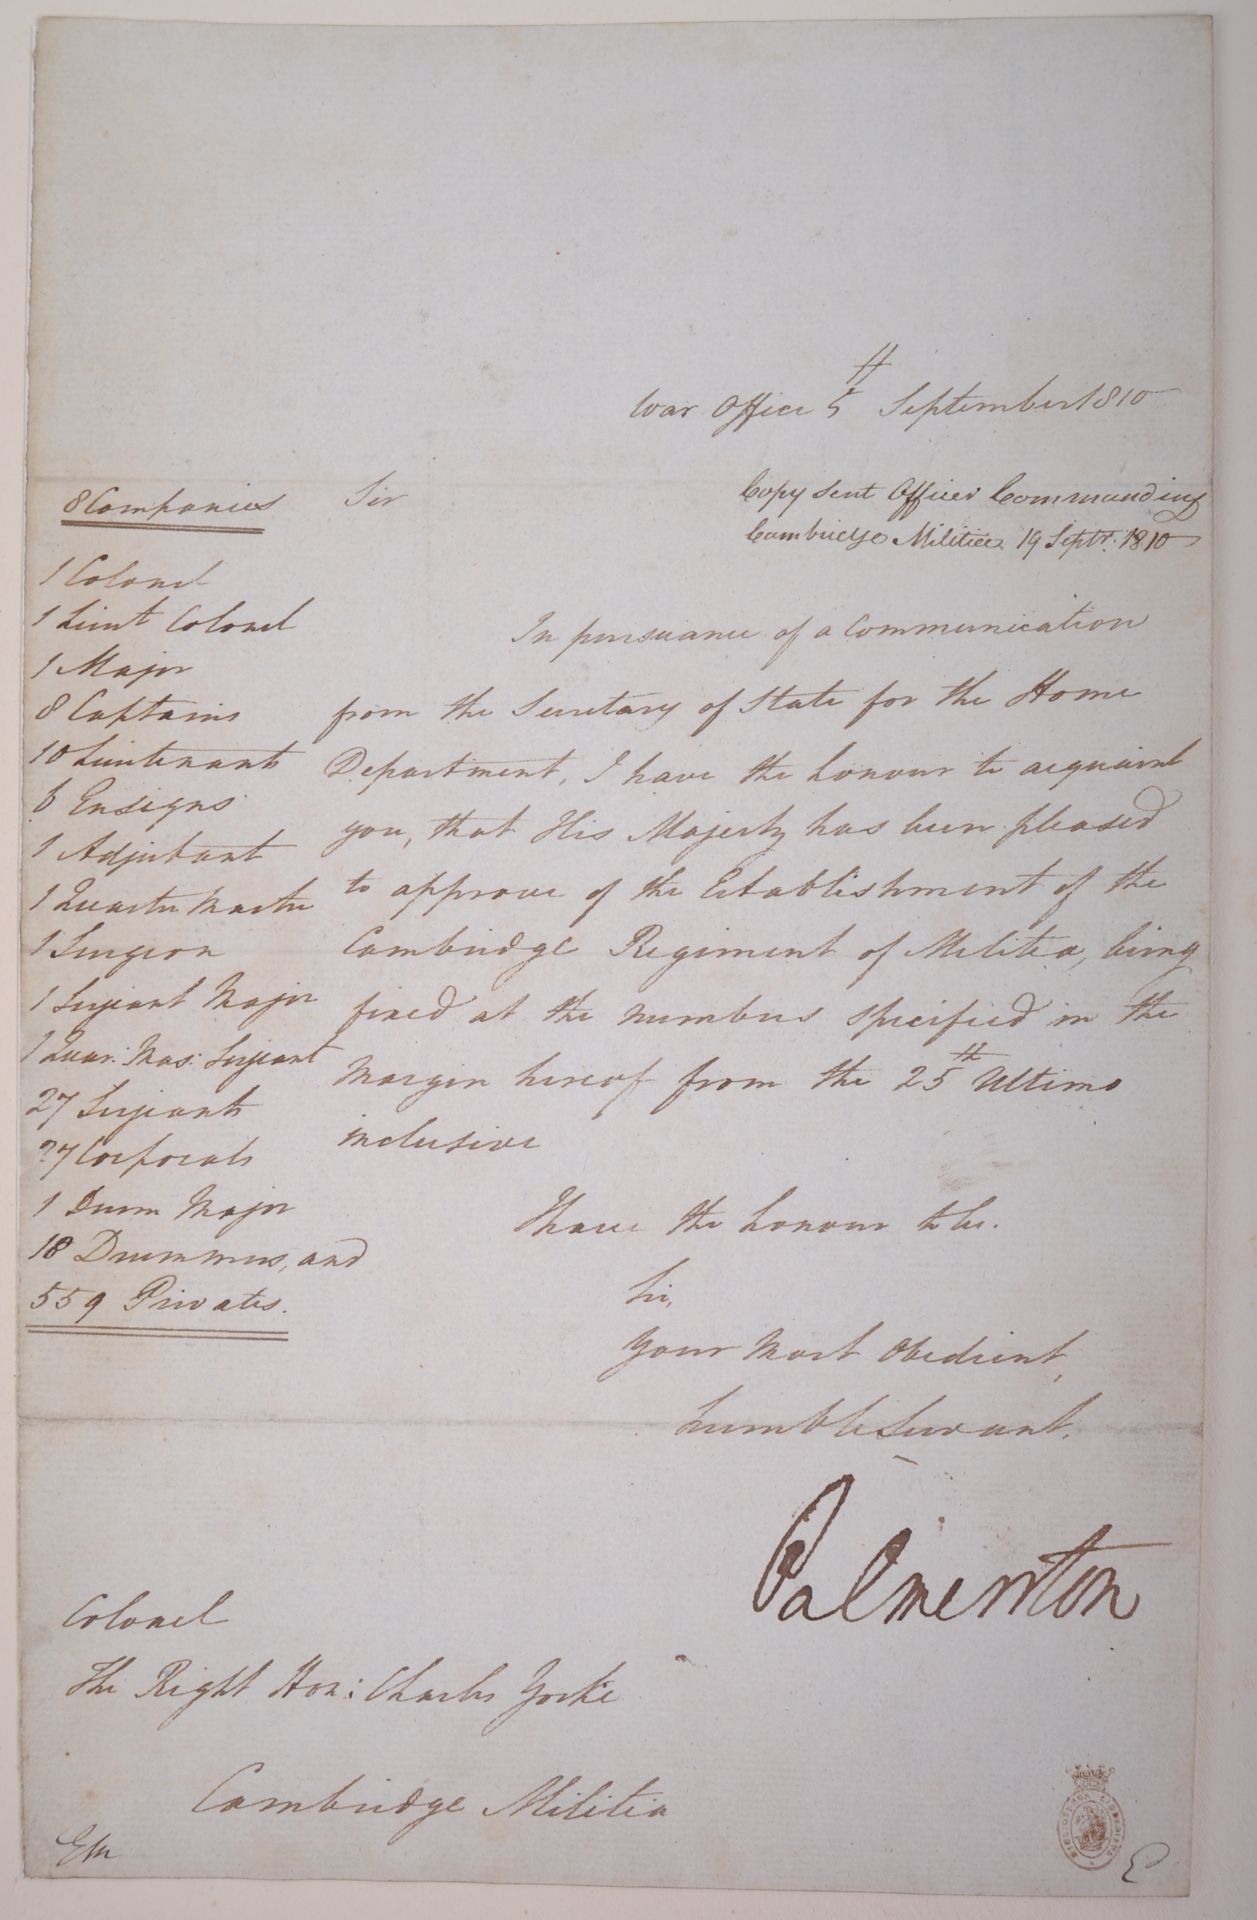 War Office 5th September 1810
Copy sent Officer Commanding
Cambridge Militia 19 Septr. 1810
Sir
8 Companies
1 Colonel
1 Lieut Colonel
1 Major
8 Captains
10 Lieutenants
6 Ensigns
1 Adjutant
1 Quarter Master
1 Surgeon
1 Serjeant Major
1 Quar: Mas: Serjeant
27 Serjeants
27 Corporals
1 Drum Major
18 Drummers, and
559 Privates.
In pursuance of a Communication
from the Secretary of State for the Home
Department, I have the honour to acquaint
you, that His Majesty has been pleased
to approve of the Establishment of the
Cambridge Regiment of Militia, being
fixed at the Numbers specified in the
Margin hereof from the 25th Ultimo
inclusive
I have the honour to be.
Sir,
Your Most Obedient,
humble Servant.
Palmerston
Colonel
The Right Hon: Charles Yorke
Cambridge Militia